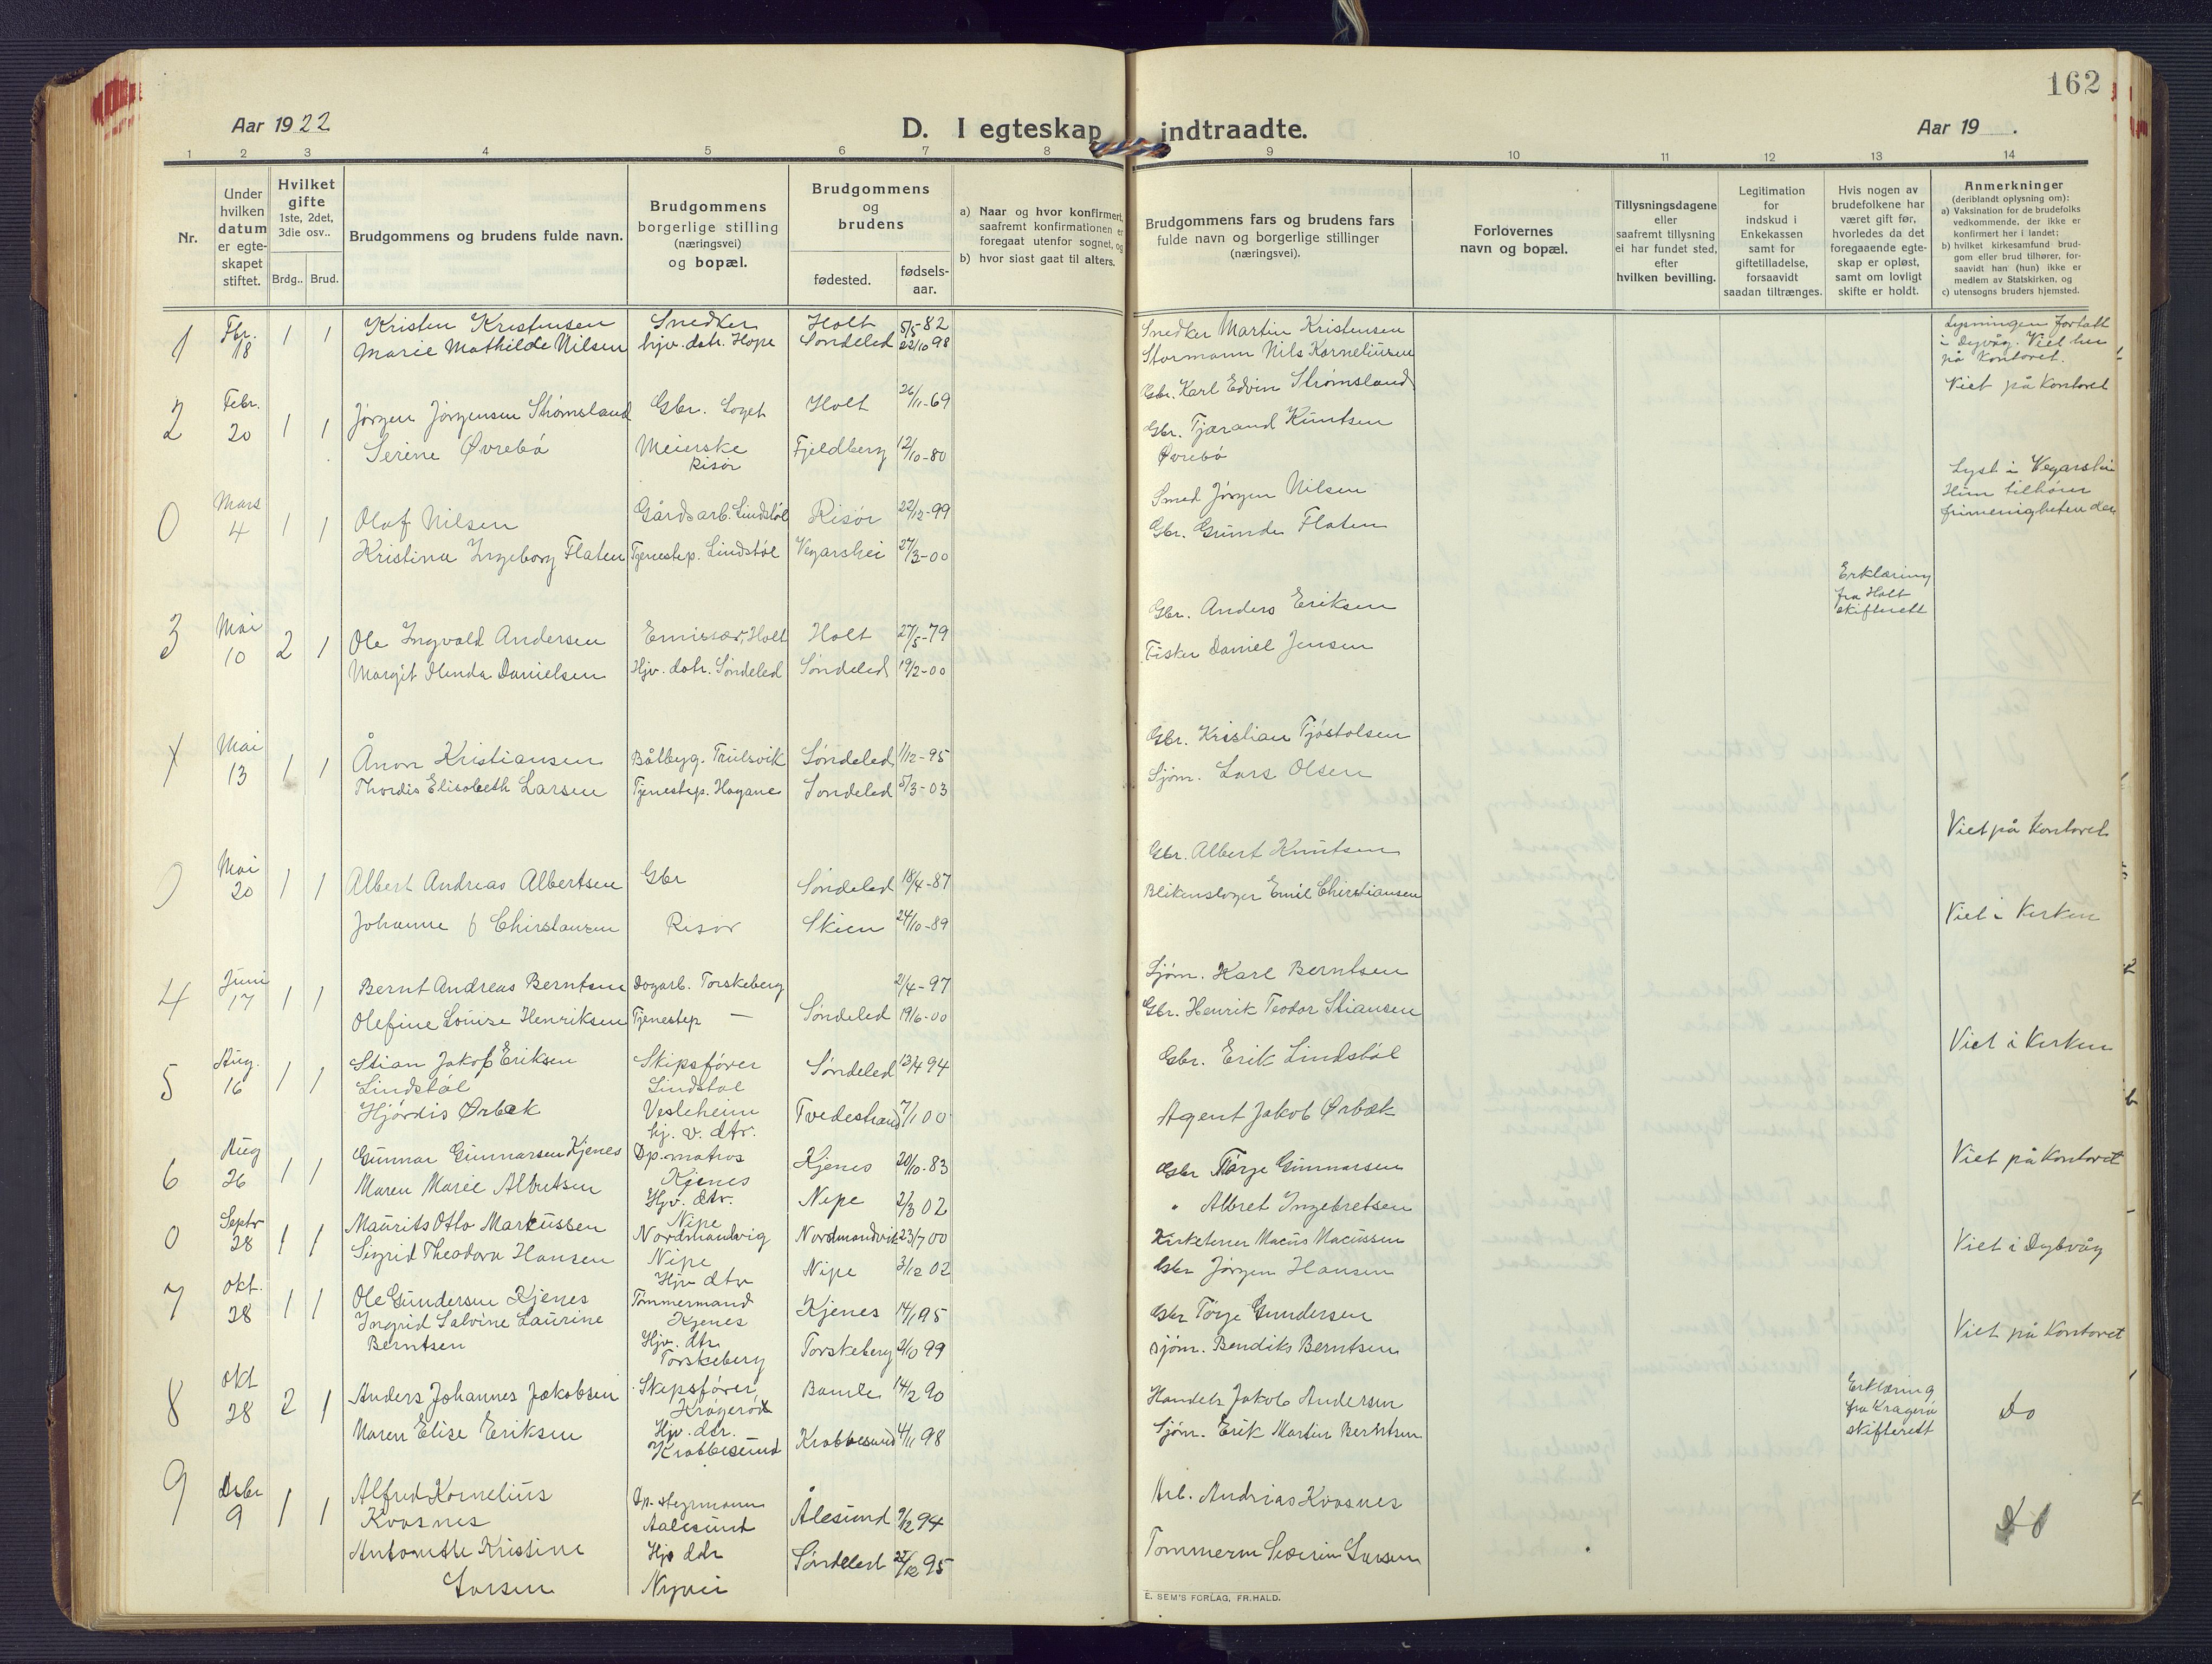 162
Aar 1922
D. I egteskap indtraadte.
Aar 19 .
1 2 3 4 5 6 7 8 9 10 11 12 13 14
Nr.
Under hvilken datum er egteskapet stiftet.
Hvilket gifte 1ste, 2det, 3die osv..
Brdg.. Brud.
Brudgommens og brudens fulde navn.
Brudgommens borgerlige stilling (næringsvei) og bopæl.
Brudgommens og brudens
fødested. fødselsaar.
a) Naar og hvor konfirmert, saafremt konfirmationen er foregaat utenfor sognet, og
b) hvor sidst gaat til alters.
Brudgommens fars og brudens fars fulde navn og borgerlige stillinger (næringsvei).
Forlovernes navn og bopæl.
Tillysningsdagene eller saafremt tillysning ei har fundet sted, efter hvilken bevilling.
Legitimation for indskud i Enkekassen samt for giftetilladelse, forsaavidt saadan tiltrænges.
Hvis nogen av brudefolkene har været gift før, hvorledes da det foregaaende egteskap er opløst, samt om lovligt skifte er holdt.
Anmerkninger (deriblandt oplysning om):
a) Vaksination for de brudefolks vedkommende, der ikke er konfirmert her i landet;
b) hvilket kirkesamfund brudgom eller brud tilhører, forsaavidt han (hun) ikke er medlem av Statskirken, og
c) utensogns bruders hjemsted.
1 Febr. 18 1 1 Kristen Kristensen Snedker Holt 5/5 82 Snedker Martin Kristensen
Marie Mathilde Nilsen hjv. datr. Hope Søndeled 22/10 98 Stormann Nils Korneliussen
Lysningen fortatt
i Dypvåg. Viet her
på kontoret.
2 Febr. 20 1 1 Jørgen Jørgensen Strømsland Gbr. Loget Holt 26/11-69 Gbr. Karl Edvin Strømsland
Viet på kontoret
Serine Øvrebø Meierske Risør Fjeldberg 12/10-80 Gbr. Tjærand Knutsen Øvrebø
0 Mars 4 1 1 Olaf Nilsen Gårdsarb. Lindstøl Risør 22/12-99 Smed Jørgen Nilsen
Kristina Ingeborg Flaten Tjenestep. Lindstøl Vegårshei 27/3-00 Gbr. Gunde Flaten
Lyst i Vegårshei
Hun tilhører
frimenigheten der
3 Mai 10 2 1 Ole Ingvald Andersen Emissær, Holt Holt 27/5-79 Gbr. Anders Eriksen
Erklæring
fra Holt
skifterett
Margit Hinda Danielsen Hjv. datr. Søndeled Søndeled 19/2-00 Fisker Daniel Jensen
Mai 13 1 1 Ånon Kristiansen Båtbyg. Trulsvik Søndeled 1/12-95 Gbr. Kristian Tjøstolsen
Thordis Elisabeth Larsen Tjenestep. Hagane Søndeled 5/3-03 Sjøm. Lars Olsen
Mai 20 1 1 Albert Andreas Albertsen Gbr Søndeled 18/4-87 Gbr. Albert Knutsen
Viet på kontoret
Johanne Christiansen Risør Skien 24/10-89 Blikenslager Emil Christiansen
Viet i Kirken
4 Juni 17 1 1 Bernt Andreas Berntsen Dagarb. Torskeberg 2/4-97 Sjøm. Karl Berntsen
Olefine Louise Henriksen Tjenestep — Søndeled 19/6-00 Gbr. Henrik Teodor Stiansen
5 Aug. 16 1 1 Stian Jakob Eriksen Lindstøl Skipsfører Lindstøl Søndeled 13/4 94 Gbr. Erik Lindstøl
Viet i Kirken
Hjørdis Ørbæk Vesleheim hj. v. dtr. Tvedestrand 7/1 00 Agent Jakob Ørbæk
6 Aug 26 1 1 Gunnar Gunnarsen Kjenes Dp. matros Kjenes Kjenes 20/10-83 Gbr Tarje Gunnarsen
Viet på kontoret
Maren Marie Albretsen Hjv. dtr. Nipe Nipe 2/3 02 " Albret Ingebretsen
0 Septr 28 1 1 Maurits Otto Markussen Nordmandvig Nordmandvik 23/7 00 Kirketener Macus Macussen
Viet i Dybvåg
Sigrid Theodora Hansen Nipe Hjv dtr Nipe 3/12 02 Gbr Jørgen Hansen
7 Okt. 28 1 1 Ole Gundersen Kjenes Tømmermand Kjenes Kjenes 14/1 95 Gbr Tarje Gundersen
Ingrid Salvine Laurine Berntsen Hjv. dtr Torskeberg Torskeberg 2/10 99 Sjøm. Bendiks Berntsen
Viet på kontoret
8 Okt 28 2 1 Anders Johannes Jakobsen Skipsfører Kragerø Bamle 14/2 90 Handelr Jakob Andersen
Erklæring
fra Kragerø
skifterett
Do
Maren Elise Eriksen Hjv. dtr. Krabbesund Krabbesund 4/11 98 Sjøm. Erik Martin Berntsen
9 Desbr 9 1 1 Alfred Kornelius Kvasnes Dp. styrmann Aalesund Ålesund 9/12 94 Arb. Andrias Kvasnes
Do
Antonette Kristine Larsen Hjv dtr Nyvei Søndeled 25/12 95 Tømmerm Severin Larsen
E. SEM'S FORLAG, FR.HALD.